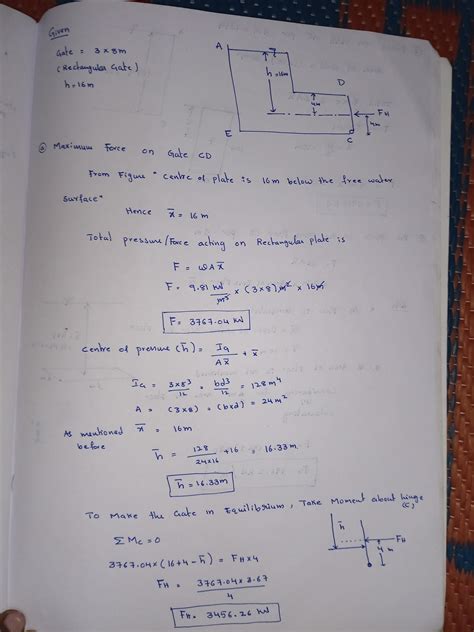 Given
Gate = 3 x 8m
(Rectangular Gate)
h = 16m
A
h=16m
D
4m
FH
4m
E
C
Maximum Force on Gate CD
From Figure "Centre of plate is 16m below the free water
surface"
Hence x̄ = 16m
Total pressure/Force acting on Rectangular plate is
F = ωAx̄
F = 9.81 kN/m³ x (3x8)m² x 16m
F = 3767.04 kN
Centre of pressure (h̄) = IG/Ax̄ + x̄
IG = 3x8³/12 = bd3/12 = 128m⁴
A = (3x8) = (bxd) = 24m²
As mentioned before x̄ = 16m
h̄ = 128/24x16 + 16 = 16.33m
h̄ = 16.33m
To Make the Gate in Equilibrium, Take Moment about hinge
(C)
ΣMc = 0
3767.04 x (16+4-h̄) = FH x 4
FH = 3767.04 x 3.67/4
FH = 3456.26 kN
h̄
FH
4m